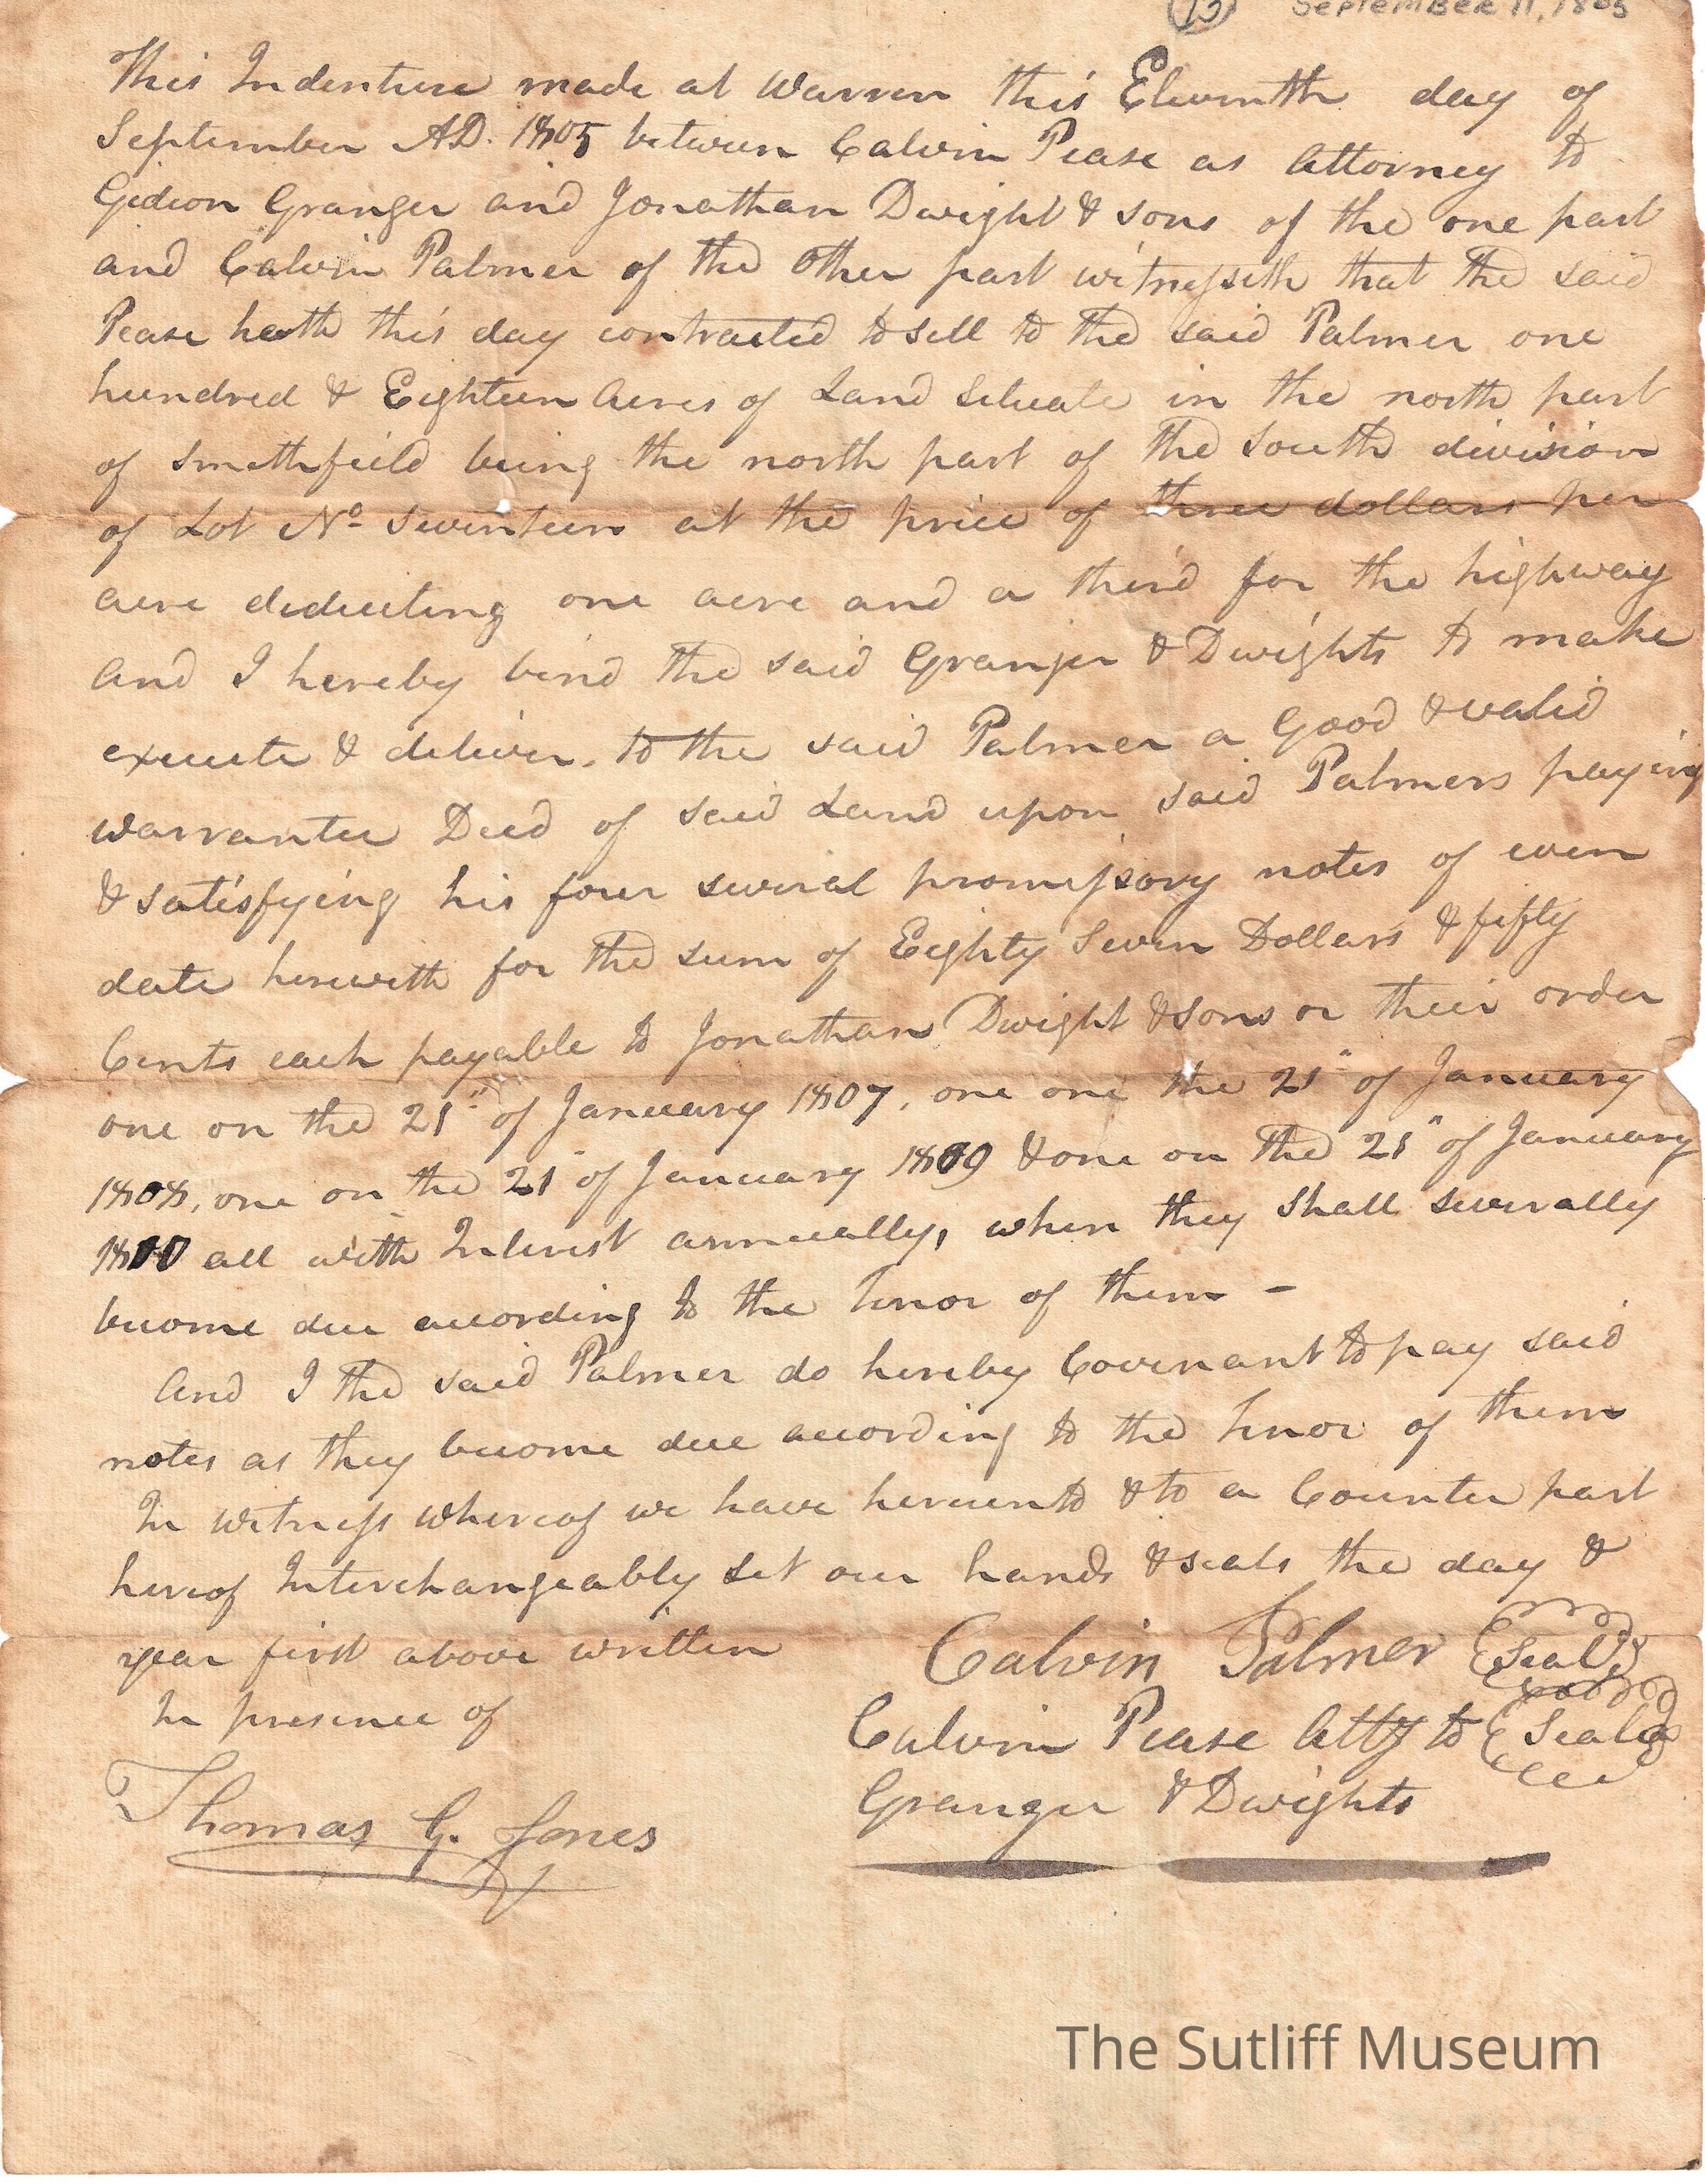 13 September 11, 1805
This Indenture made at Warren this Eleventh day of
September AD. 1805 between Calvin Pease as Attorney to
Gideon Granger and Jonathan Dwight & sons of the one part
and Calvin Palmer of the Other part witnesseth that the said
Pease hath this day contracted to sell to the said Palmer one
hundred & Eighteen Acres of Land Situate in the north part
of Smithfield being the north part of the South division
of Lot No Seventeen at the price of three dollars per
acre deducting one acre and a third for the highway
And I hereby bind the said Granger & Dwights to make
execute & deliver. to the said Palmer a Good & valid
warrantee Deed of said Land upon said Palmers paying
& satisfying his four several promissory notes of even
date herewith for the sum of Eighty Seven Dollars & fifty
Cents each payable to Jonathan Dwight & sons or their order
one on the 21" of January 1807, one one the 21" of January
1808, one on the 21" of January 1809 & one on the 21" of January
1810 all with Interest annually, when they shall severally
become due according to the tenor of them –
And I the said Palmer do hereby Covenant to pay said
notes as they become due according to the tenor of them
In witness whereof we have hereunto & to a Counter part
hereof Interchangeably set our hands & seals the day &
year first above written Calvin Palmer Seal
In presence of Calvin Pease Atty to Seal
Thomas G. Jones Granger & Dwights
The Sutliff Museum